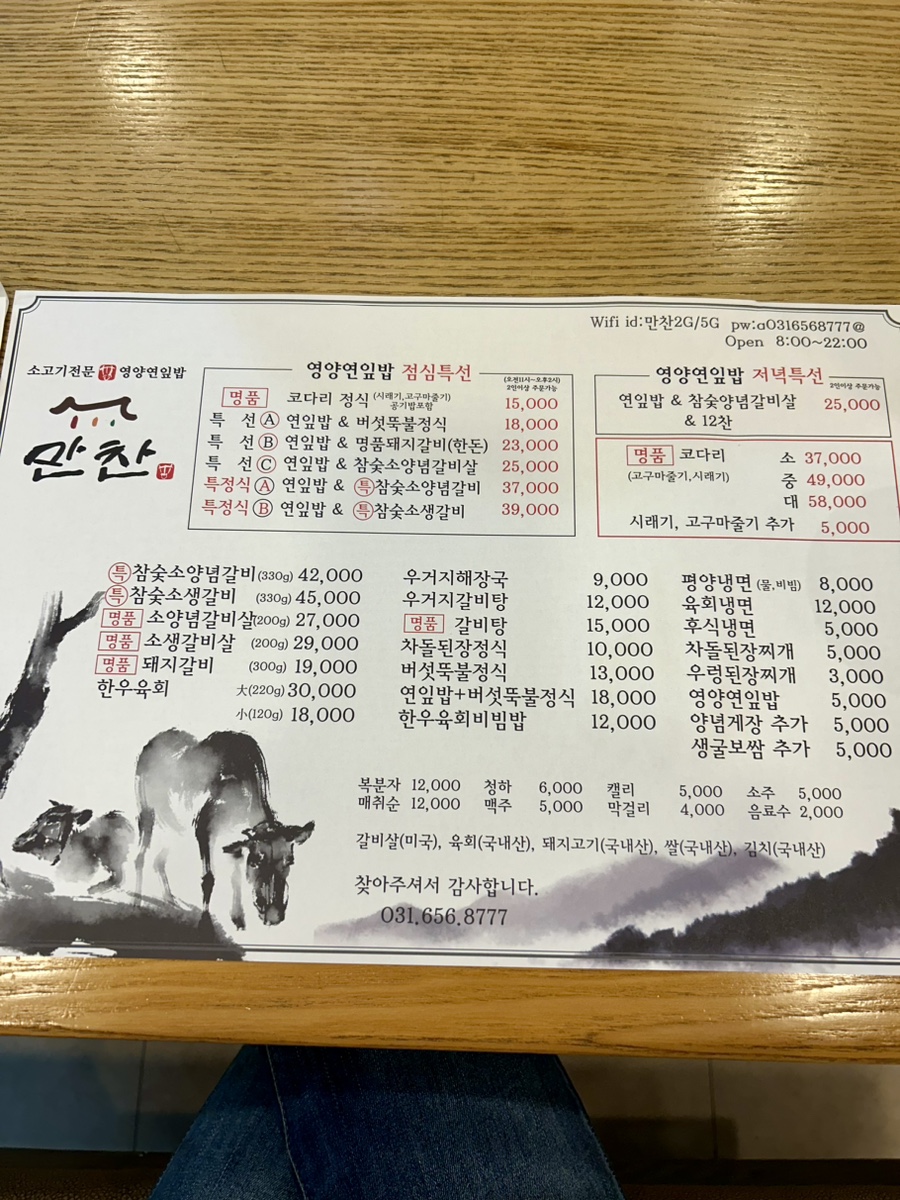 Wifi id:만찬2G/5G pw:a0316568777@
Open 8:00~22:00
소고기전문 영양연잎밥
만찬
영양연잎밥 점심특선 (오전11시~오후3시) 2인이상 주문가능
명품 코다리 정식 (시래기,고구마줄기) 공기밥포함 15,000
특 선 Ⓐ 연잎밥 & 버섯뚝불정식 18,000
특 선 Ⓑ 연잎밥 & 명품돼지갈비(한돈) 23,000
특 선 Ⓒ 연잎밥 & 참숯소양념갈비살 25,000
특정식 Ⓐ 연잎밥 & 특참숯소양념갈비 37,000
특정식 Ⓑ 연잎밥 & 특참숯소생갈비 39,000
영양연잎밥 저녁특선 2인이상 주문가능
연잎밥 & 참숯양념갈비살 25,000
& 12찬
명품 코다리 소 37,000
(고구마줄기,시래기) 중 49,000
대 58,000
시래기, 고구마줄기 추가 5,000
특 참숯소양념갈비(330g) 42,000
특 참숯소생갈비 (330g) 45,000
명품 소양념갈비살(200g) 27,000
명품 소생갈비살 (200g) 29,000
명품 돼지갈비 (300g) 19,000
한우육회 大(220g) 30,000
小(120g) 18,000
우거지해장국 9,000
우거지갈비탕 12,000
명품 갈비탕 15,000
차돌된장정식 10,000
버섯뚝불정식 13,000
연잎밥+버섯뚝불정식 18,000
한우육회비빔밥 12,000
평양냉면 (물,비빔) 8,000
육회냉면 12,000
후식냉면 5,000
차돌된장찌개 5,000
우렁된장찌개 3,000
영양연잎밥 5,000
양념게장 추가 5,000
생굴보쌈 추가 5,000
복분자 12,000 청하 6,000 캘리 5,000 소주 5,000
매취순 12,000 맥주 5,000 막걸리 4,000 음료수 2,000
갈비살(미국), 육회(국내산), 돼지고기(국내산), 쌀(국내산), 김치(국내산)
찾아주셔서 감사합니다.
031.656.8777